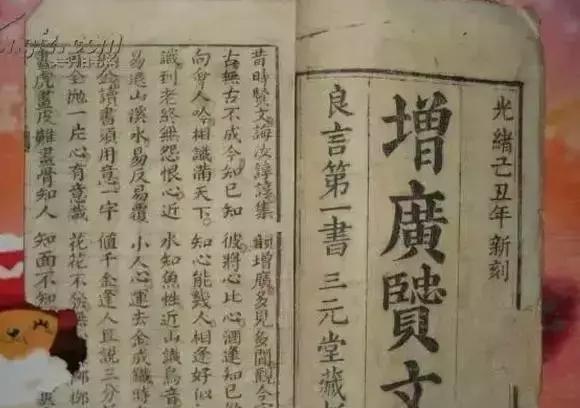 光緒己丑年新刻
增廣賢文
良言第一書 三元堂藏
昔時賢文誨汝諄諄集 韻增廣多見多聞觀今
古無古不成今知己知 彼將心比心酒逢知己
向會人吟相識滿天下 知心能幾人相逢好似
識到老終無怨恨心近 水知魚性近山識鳥音
易退山溪水易反易覆 小人心運去金成鐵時
金讀書須用意一字 值千金逢人且說三分
全拋一片心有意栽 花花不發無
畫虎畫皮難畫骨知人 知面不知